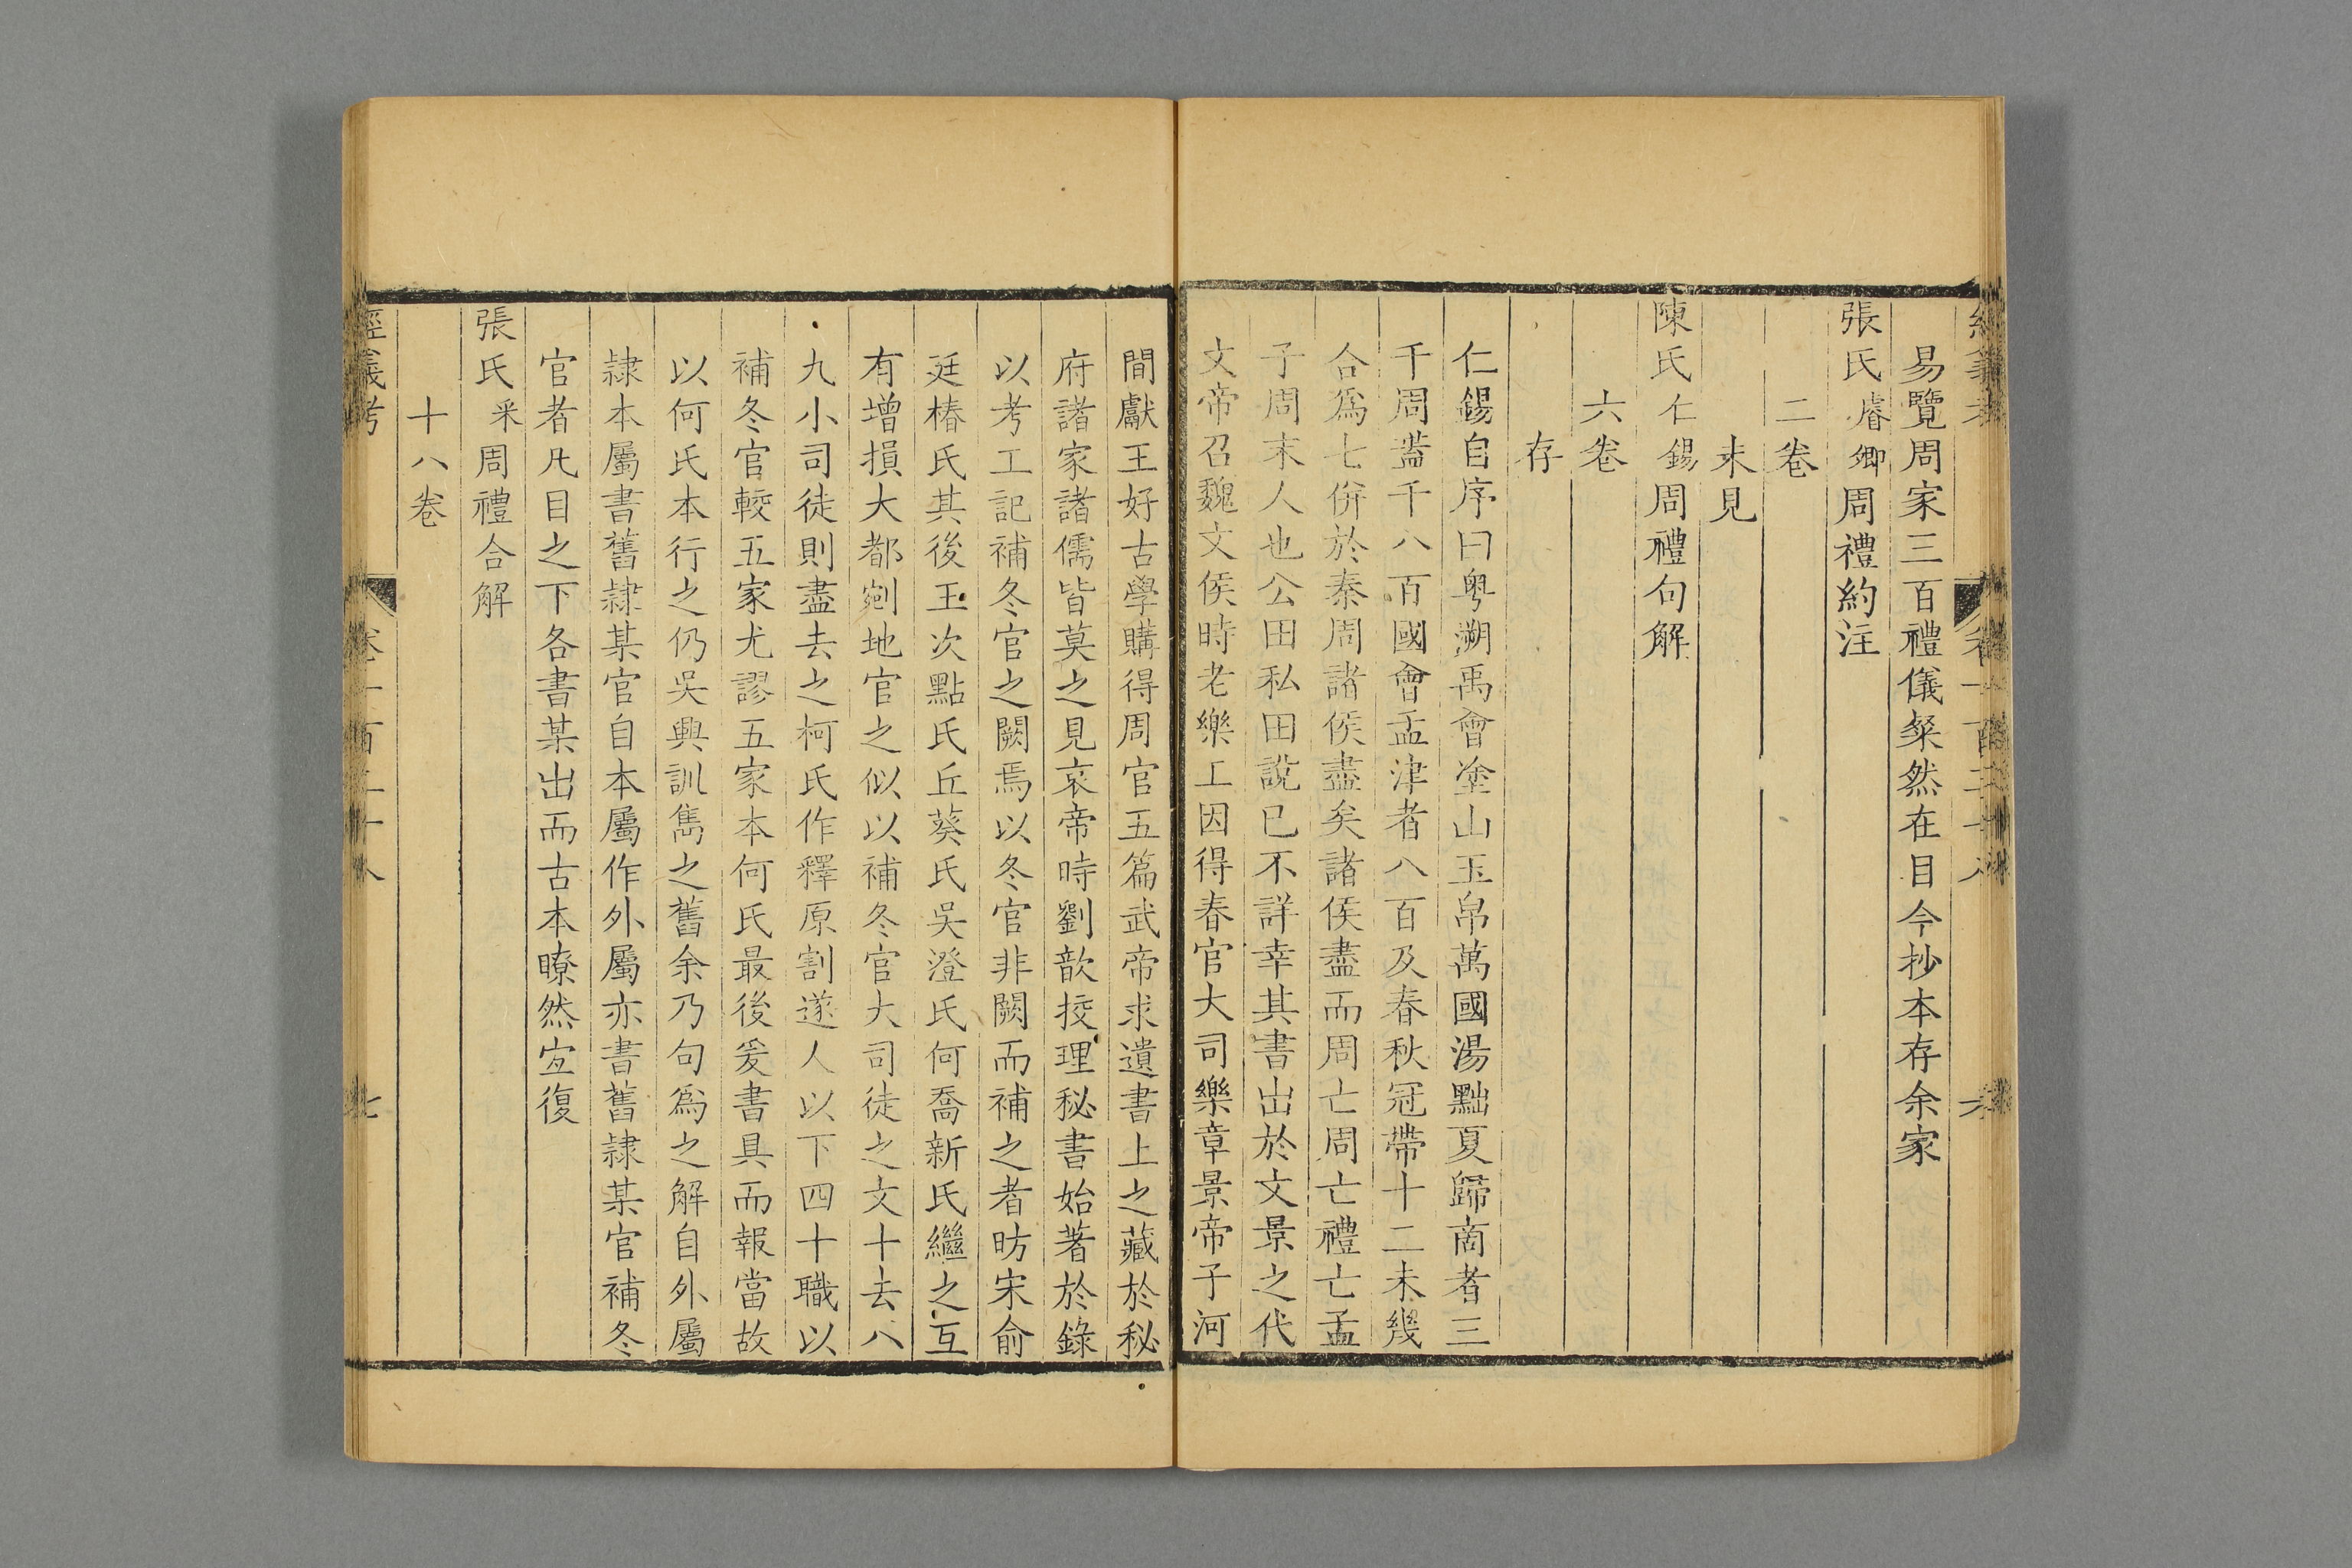 易覽周家三百禮儀粲然在目今抄本存余家
張氏睿卿周禮約注
二卷
未見
陳氏仁錫周禮句解
六卷
存
仁錫自序曰粵溯禹會塗山玉帛萬國湯黜夏歸商者三
千周葢千八百國會孟津者八百及春秋冠帶十二未幾
合爲七併於秦周諸侯盡矣諸侯盡而周亡周亡禮亡孟
子周末人也公田私田說已不詳幸其書出於文景之代
文帝召魏文侯時老樂工因得春官大司樂章景帝子河
間獻王好古學購得周官五篇武帝求遺書上之藏於秘
府諸家諸儒皆莫之見哀帝時劉歆挍理秘書始著於錄
以考工記補冬官之闕焉以冬官非闕而補之者昉宋俞
廷椿氏其後王次點氏丘葵氏吳澄氏何喬新氏繼之互
有增損大都剜地官之似以補冬官大司徒之文十去八
九小司徒則盡去之柯氏作釋原割遂人以下四十職以
補冬官較五家尤謬五家本何氏最後爰書具而報當故
以何氏本行之仍吳興訓雋之舊余乃句爲之解自外屬
隷本屬書舊隷某官自本屬作外屬亦書舊隷某官補冬
官者凡目之下各書某出而古本瞭然宐復
張氏采周禮合解
十八卷
經義考 卷一百二十八 七